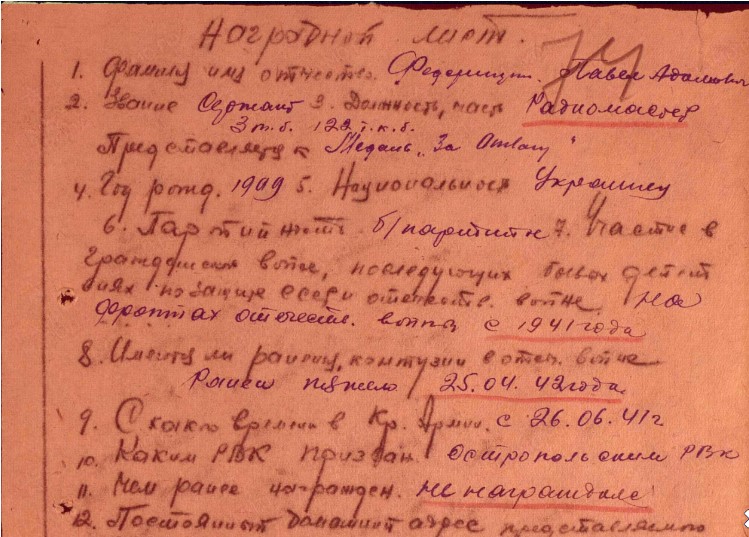 Наградной лист.
74
1. Фамилия имя отчество. Павел Адамович
2. Звание Сержант 3. Должность, часть Радиомастер
3 т.б. 122 т.к.б.
Представляется к Медаль „За Отвагу"
4. Год рожд. 1909 5. Национальность Украинец
6. Партийность б/партийн 7. Участие в
гражданской войне, последующих боевых действ
иях по защите ссср отечеств. войне. на
фронтах отечеств. войны с 1941 года
8. Имеет ли ранения, контузии в отеч. войне
Ранен тяжело 25.04.42 года
9. С какого времени в Кр. Армии. с 26.06.41 г
10. Каким РВК призван. Остропольским РВК
11. Чем ранее награжден. не награждался
12. Постоянный домашний адрес представляемого